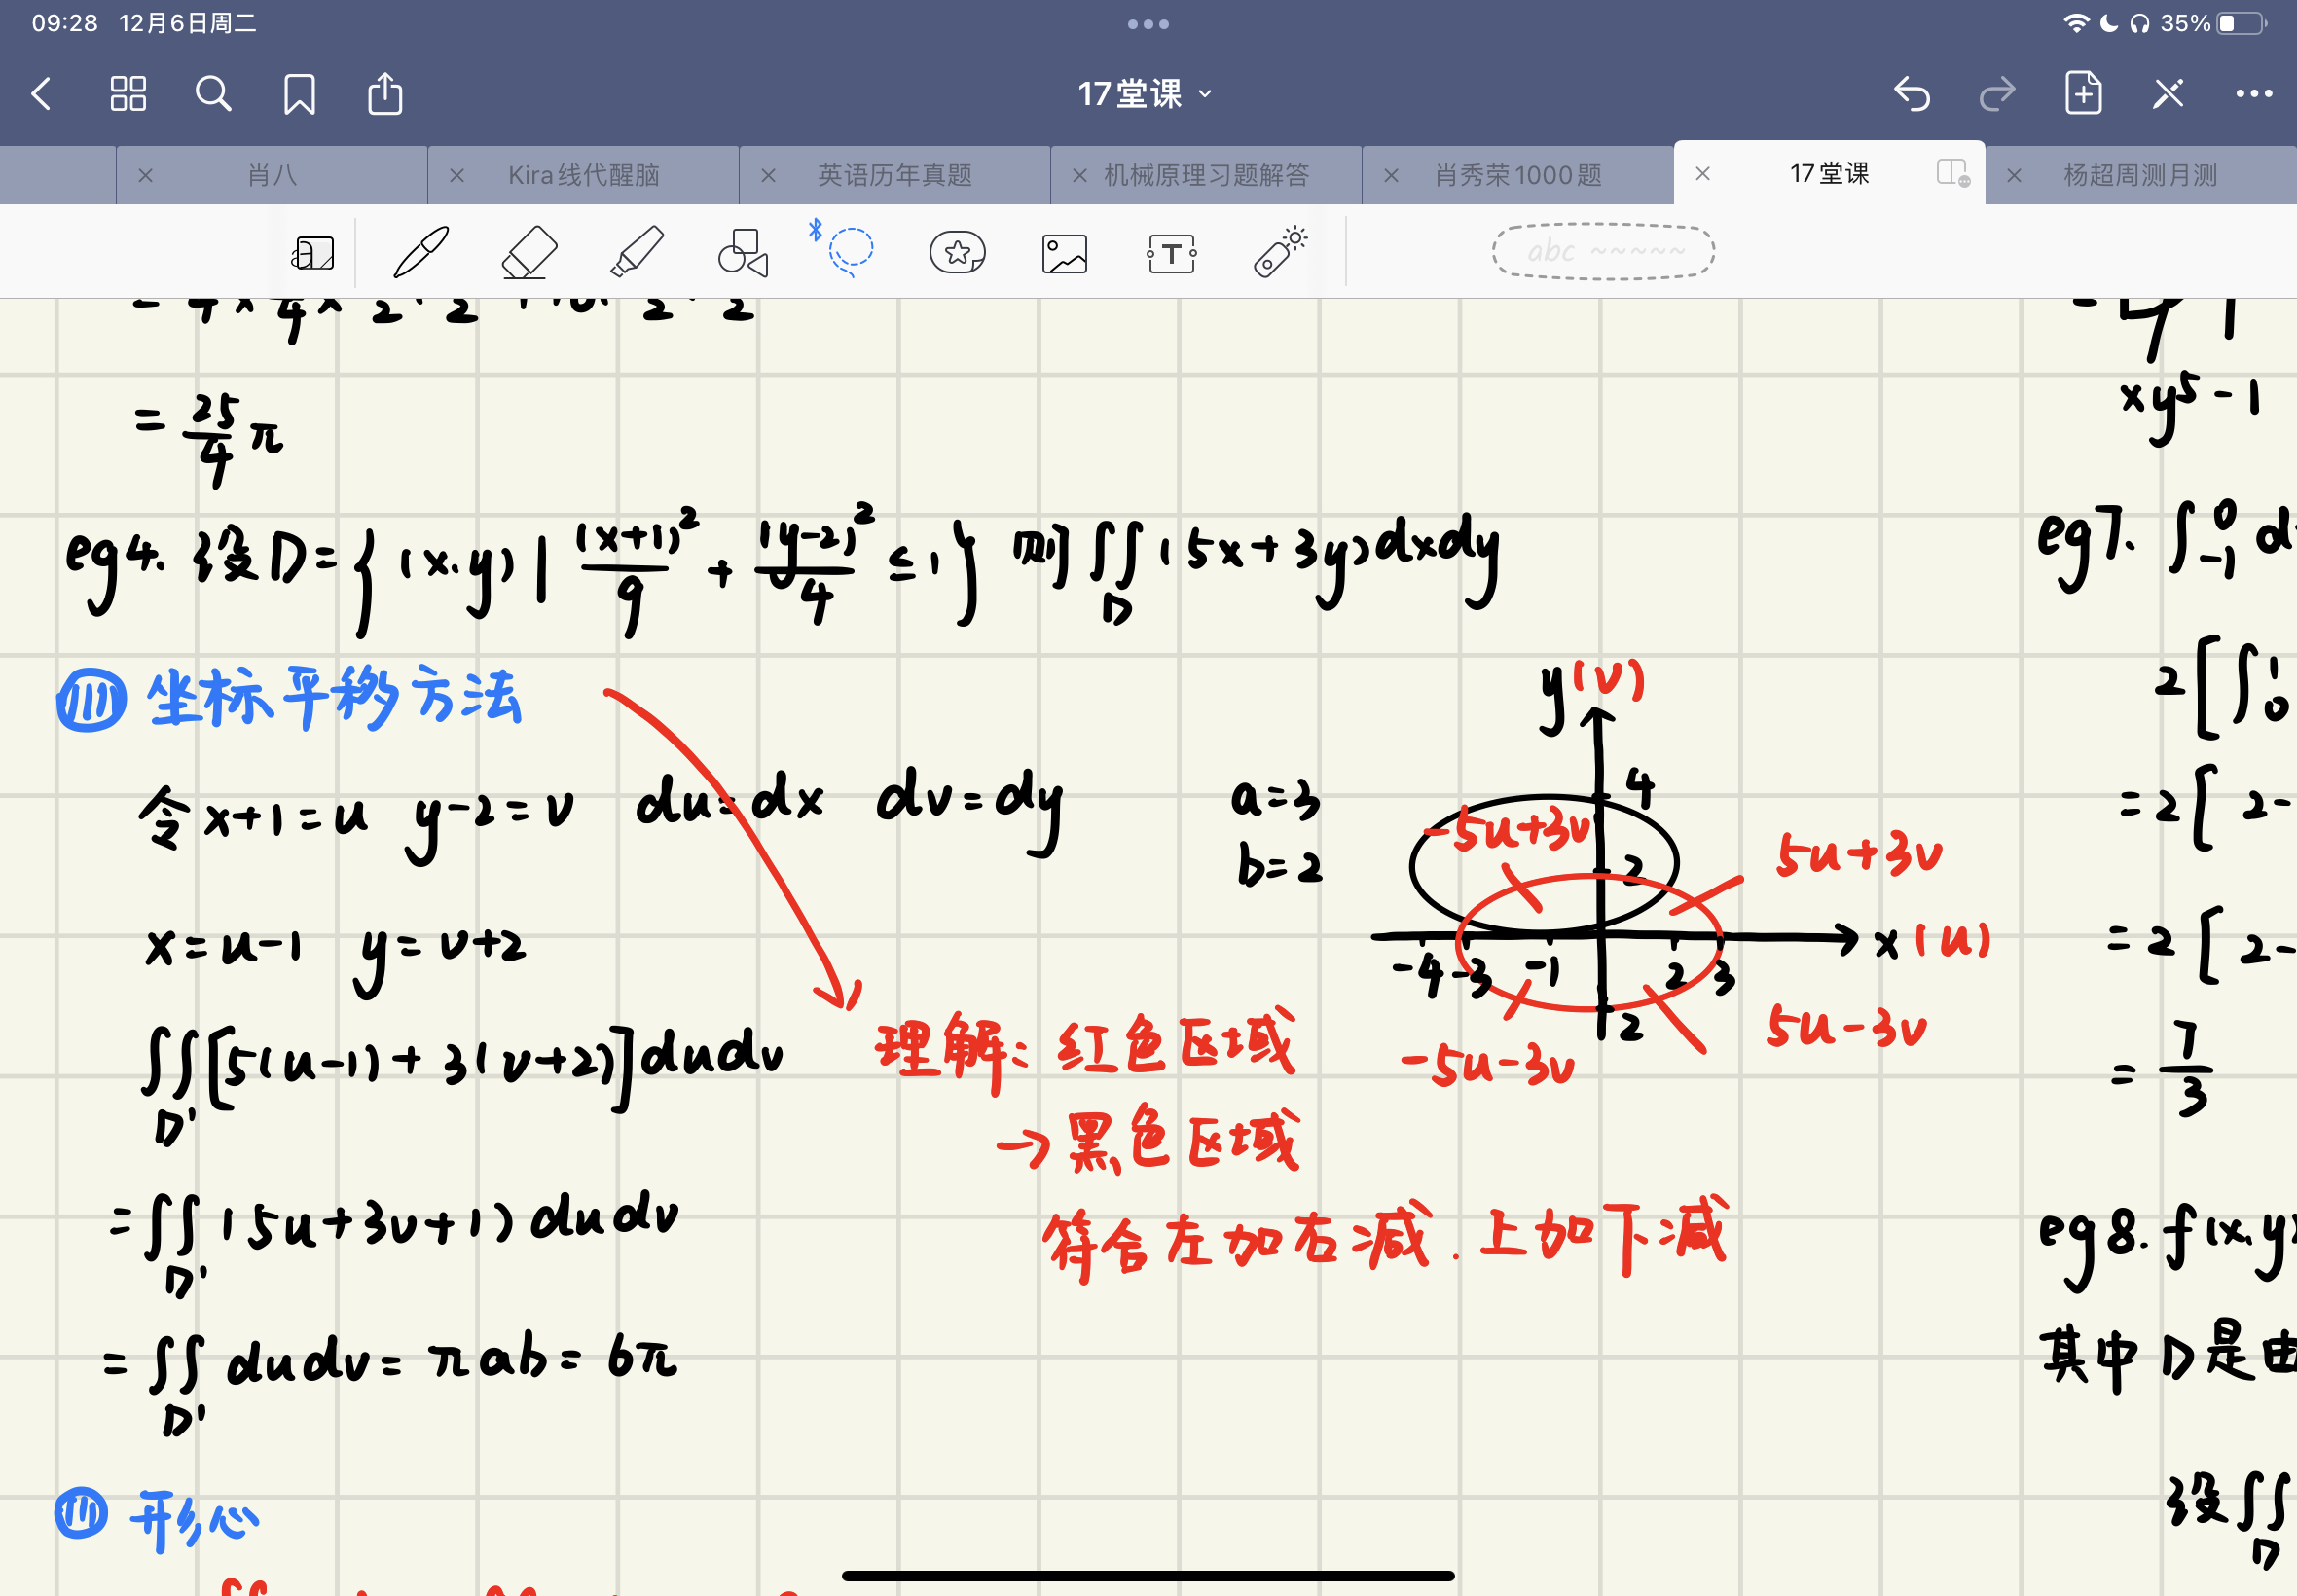 09:28 12月6日周二
35%
17堂课
肖八
Kira线代醒脑
英语历年真题
机械原理习题解答
肖秀荣1000题
17堂课
杨超周测月测
abc ~~~~~
= 25/4 π
eg4. 设D={(x.y) | (x+1)²/9 + (y-2)²/4 ≤ 1} 则∬_D (5x+3y)dxdy
(1) 坐标平移方法
令 x+1=u y-2=v du=dx dv=dy
x=u-1 y=v+2
∬_D' [5(u-1)+3(v+2)]dudv
=∬_D' (5u+3v+1)dudv
=∬_D' dudv=πab=6π
a=3
b=2
y(v)
4
-5u+3v
5u+3v
2
x(u)
-4 -3 -1 2 3
2
-5u-3v
5u-3v
理解: 红色区域
→黑色区域
符合左加右减.上加下减
形心
xy⁵-1
eg7. ∫_-1^0 d
2[∫_0^1
=2[ 2-
=2[ 2-
=7/3
eg8. f(x.y)
其中D是由
设∬_D